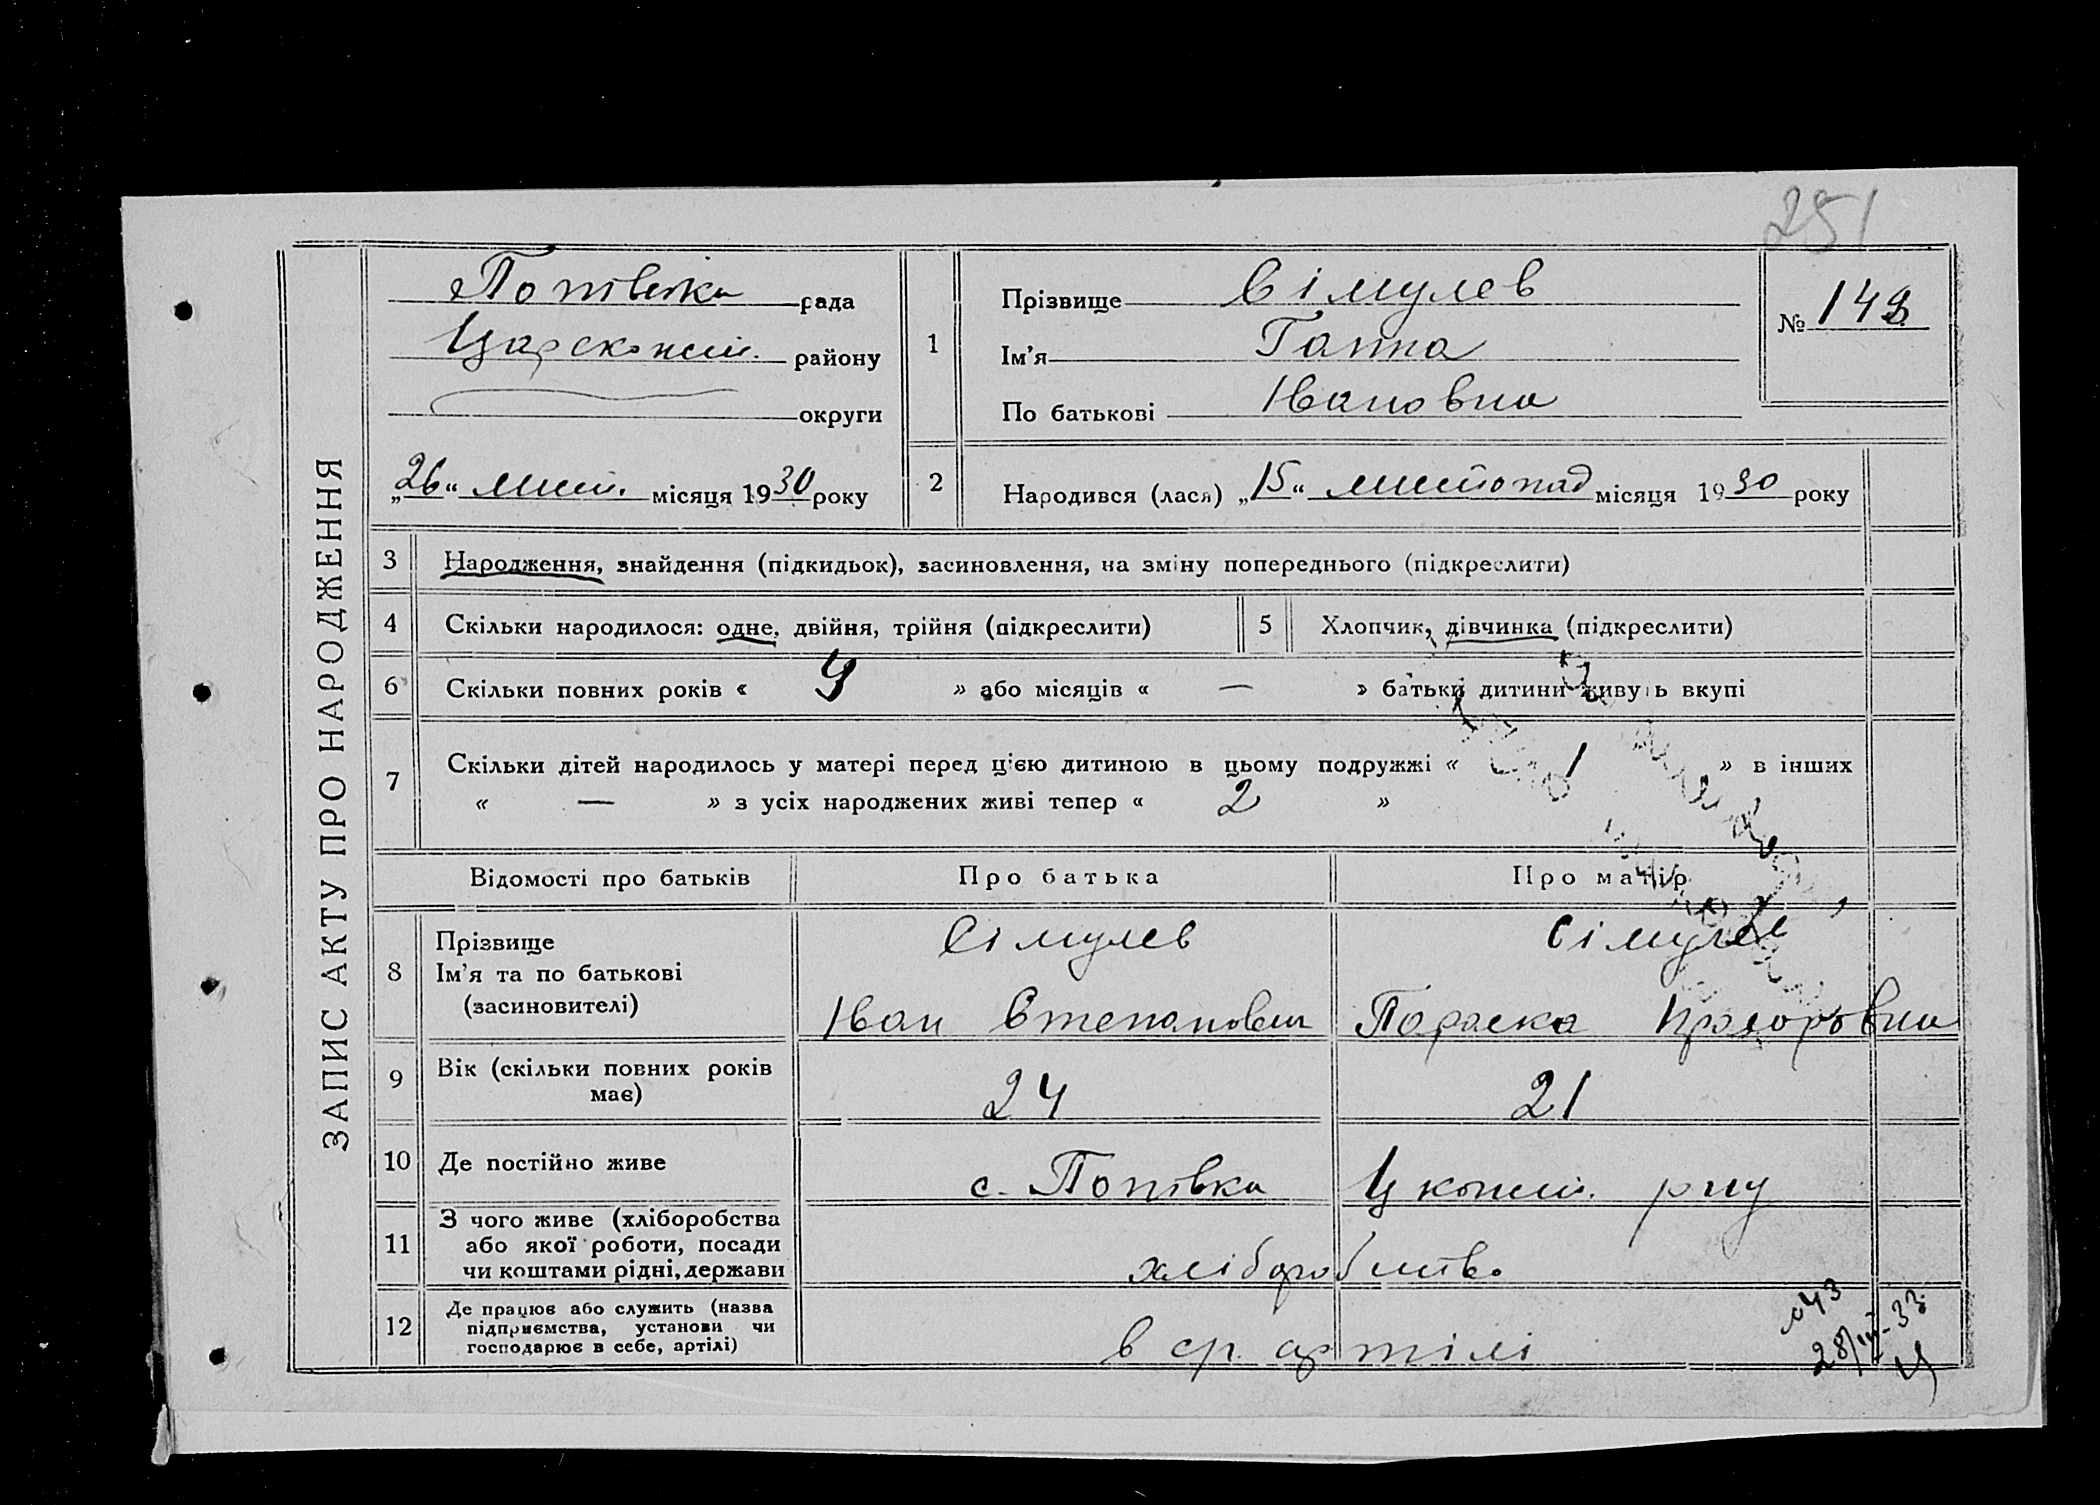 251
ЗАПИС АКТУ ПРО НАРОДЖЕННЯ
Попівська рада
Царекокий. району
округи
„26“ лист. місяця 1930 року
1
Прізвище Сімулев
Ім'я Ганна
По батькові Івановна
№ 148
2
Народився (лася) „15“ листопад місяця 1930 року
3 Народження, знайдення (підкидьок), засиновлення, на зміну попереднього (підкреслити)
4 Скільки народилося: одне, двійня, трійня (підкреслити)
5 Хлопчик, дівчинка (підкреслити)
6 Скільки повних років « 4 » або місяців « — » батьки дитини живуть вкупі
7 Скільки дітей народилось у матері перед цією дитиною в цьому подружжі « 1 » в інших
« — » з усіх народжених живі тепер « 2 »
Відомості про батьків Про батька Про матір
8 Прізвище
Ім'я та по батькові
(засиновителі)
Сімулев
Іван Степанович
Сімулев
Параска Прохоровна
9 Вік (скільки повних років
має)
24 21
10 Де постійно живе с. Попівка Ц кокий. р-ну
11 З чого живе (хліборобства
або якої роботи, посади
чи коштами рідні, держави
хліборобство
12 Де працює або служить (назва
підприємства, установи чи
господарює в себе, артілі)
в ср. артілі